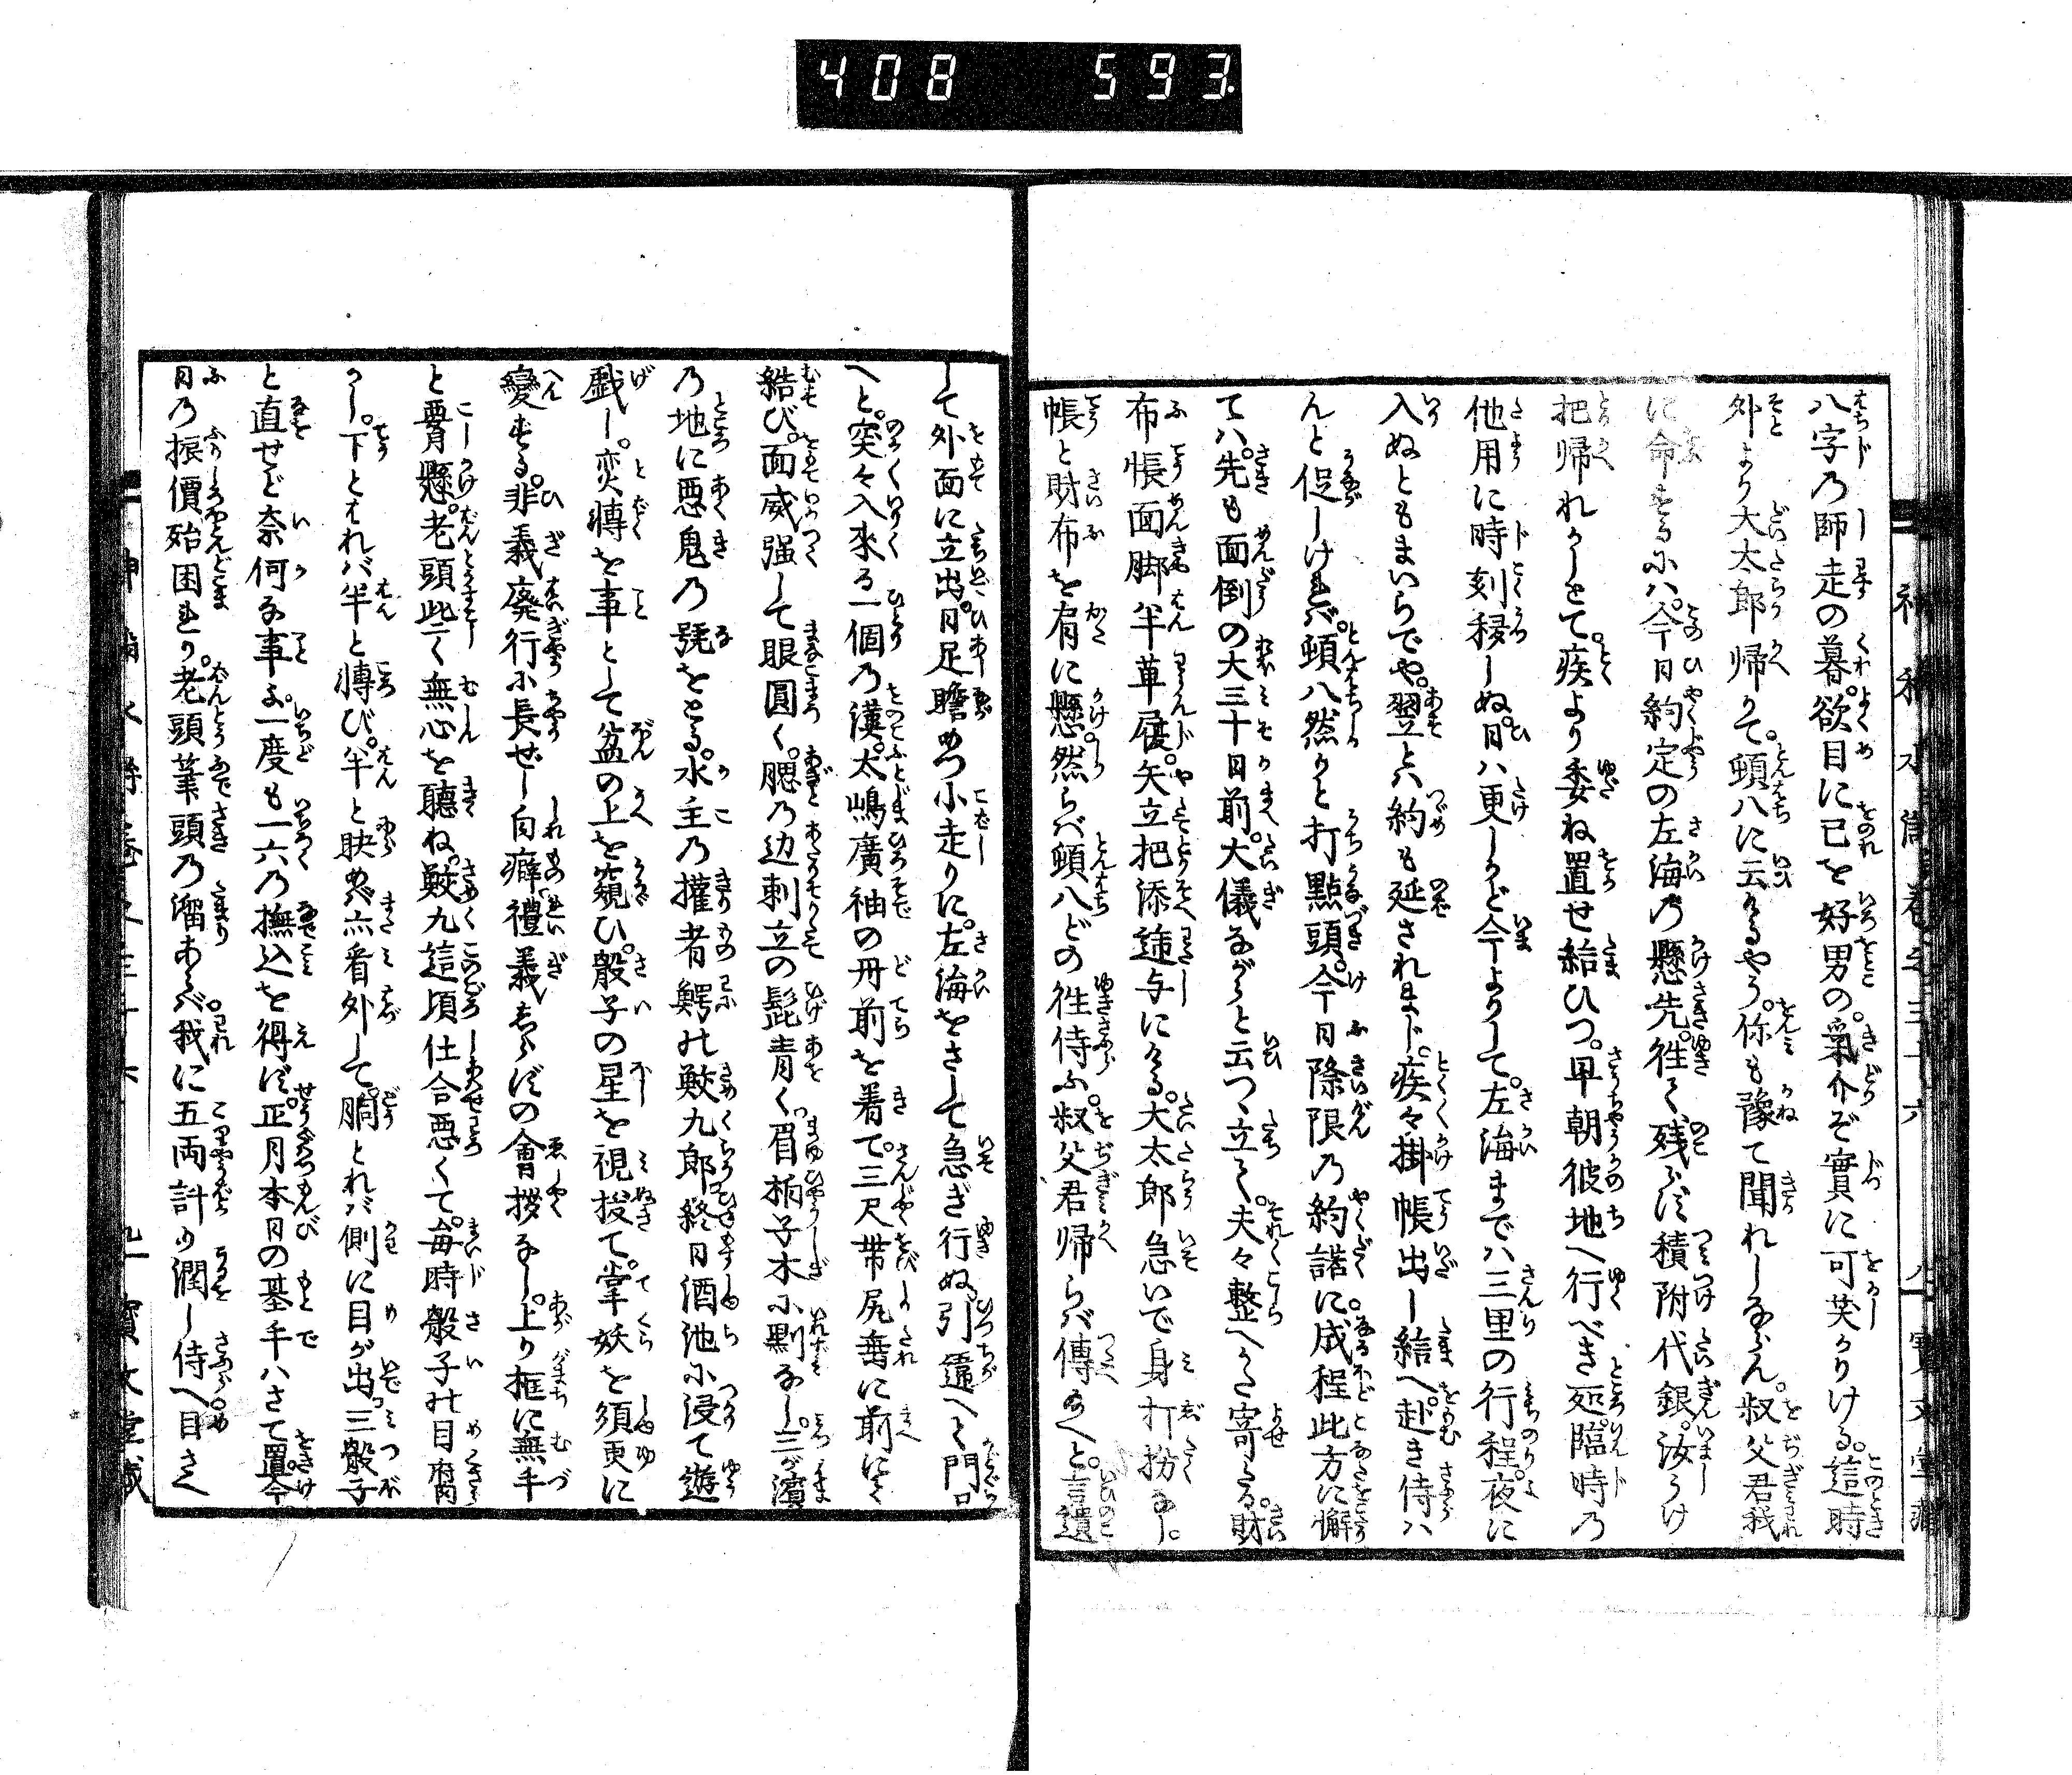 408 593
八字乃師走の暮。欲目に已を好男の。氣介ぞ實に可笑かりける。這時
外より大太郎帰りて。頓八に云けるやう。你も豫て聞れしならん。叔父君我
に命せるにハ。今日約定の左海乃懸先。徃て残らず積附代銀。汝うけ
把帰れかしとて。疾より委ね置せ給ひつ。早朝彼地へ行べき処。臨時乃
他用に時刻移しぬ。日ハ更しかど今よりして。左海までハ三里の行程。夜に
入ぬともまいらでや。翌とハ約も延されまじ。疾々掛帳出し給へ。赴き侍ハ
んと促しけれバ。頓八然かと打點頭。今日際限乃約諾に。成程此方に懈
てハ。先も面倒の大三十日前。大儀ながらと云つゝ立て。夫々整へさし寄たる。財
布帳面脚半草履。矢立把添逓与にける。大太郎急いで身打扮なし。
帳と財布を肩に懸。然らバ頓八どの徃侍ふ。叔父君帰らバ傳給へと。言遺
して外面に立出。日足瞻めつ小走りに。左海をさして急ぎ行ぬ。引違へて門口
へと。突々入來る一個乃漢。太嶋廣袖の丹前を着て。三尺帯尻垂に前にて
結び。面威强して眼圓く。腮乃辺刺立の髭青く。眉柄子木に劓なし。三ツが濱
乃地に悪鬼乃號をとる。水主乃攉者鰐の鮫九郎。終日酒池に浸て遊
戯し。奕博を事として盆の上を窺ひ。骰子の星を視拔て。掌妖を須更に
變ずる。非義廢行に長ぜし白癖。禮義しらずの會拶なし。上り框に無手
と臀懸。老頭些く無心を聽ね。鮫九這頃仕合悪くて。毎時骰子の目腐
かし。下とはれバ半と博び。半と映めバ六看外して。胴とれバ側に目が出。三骰子
と直せど奈何な事よ。一度も一六乃撫込を得ず。正月本日の基手ハさて置。今
日乃振價殆困れり。老頭筆頭乃溜あらバ。我に五両計り潤し侍へ。目さへ
八 寶文堂藏
九 寶文堂藏